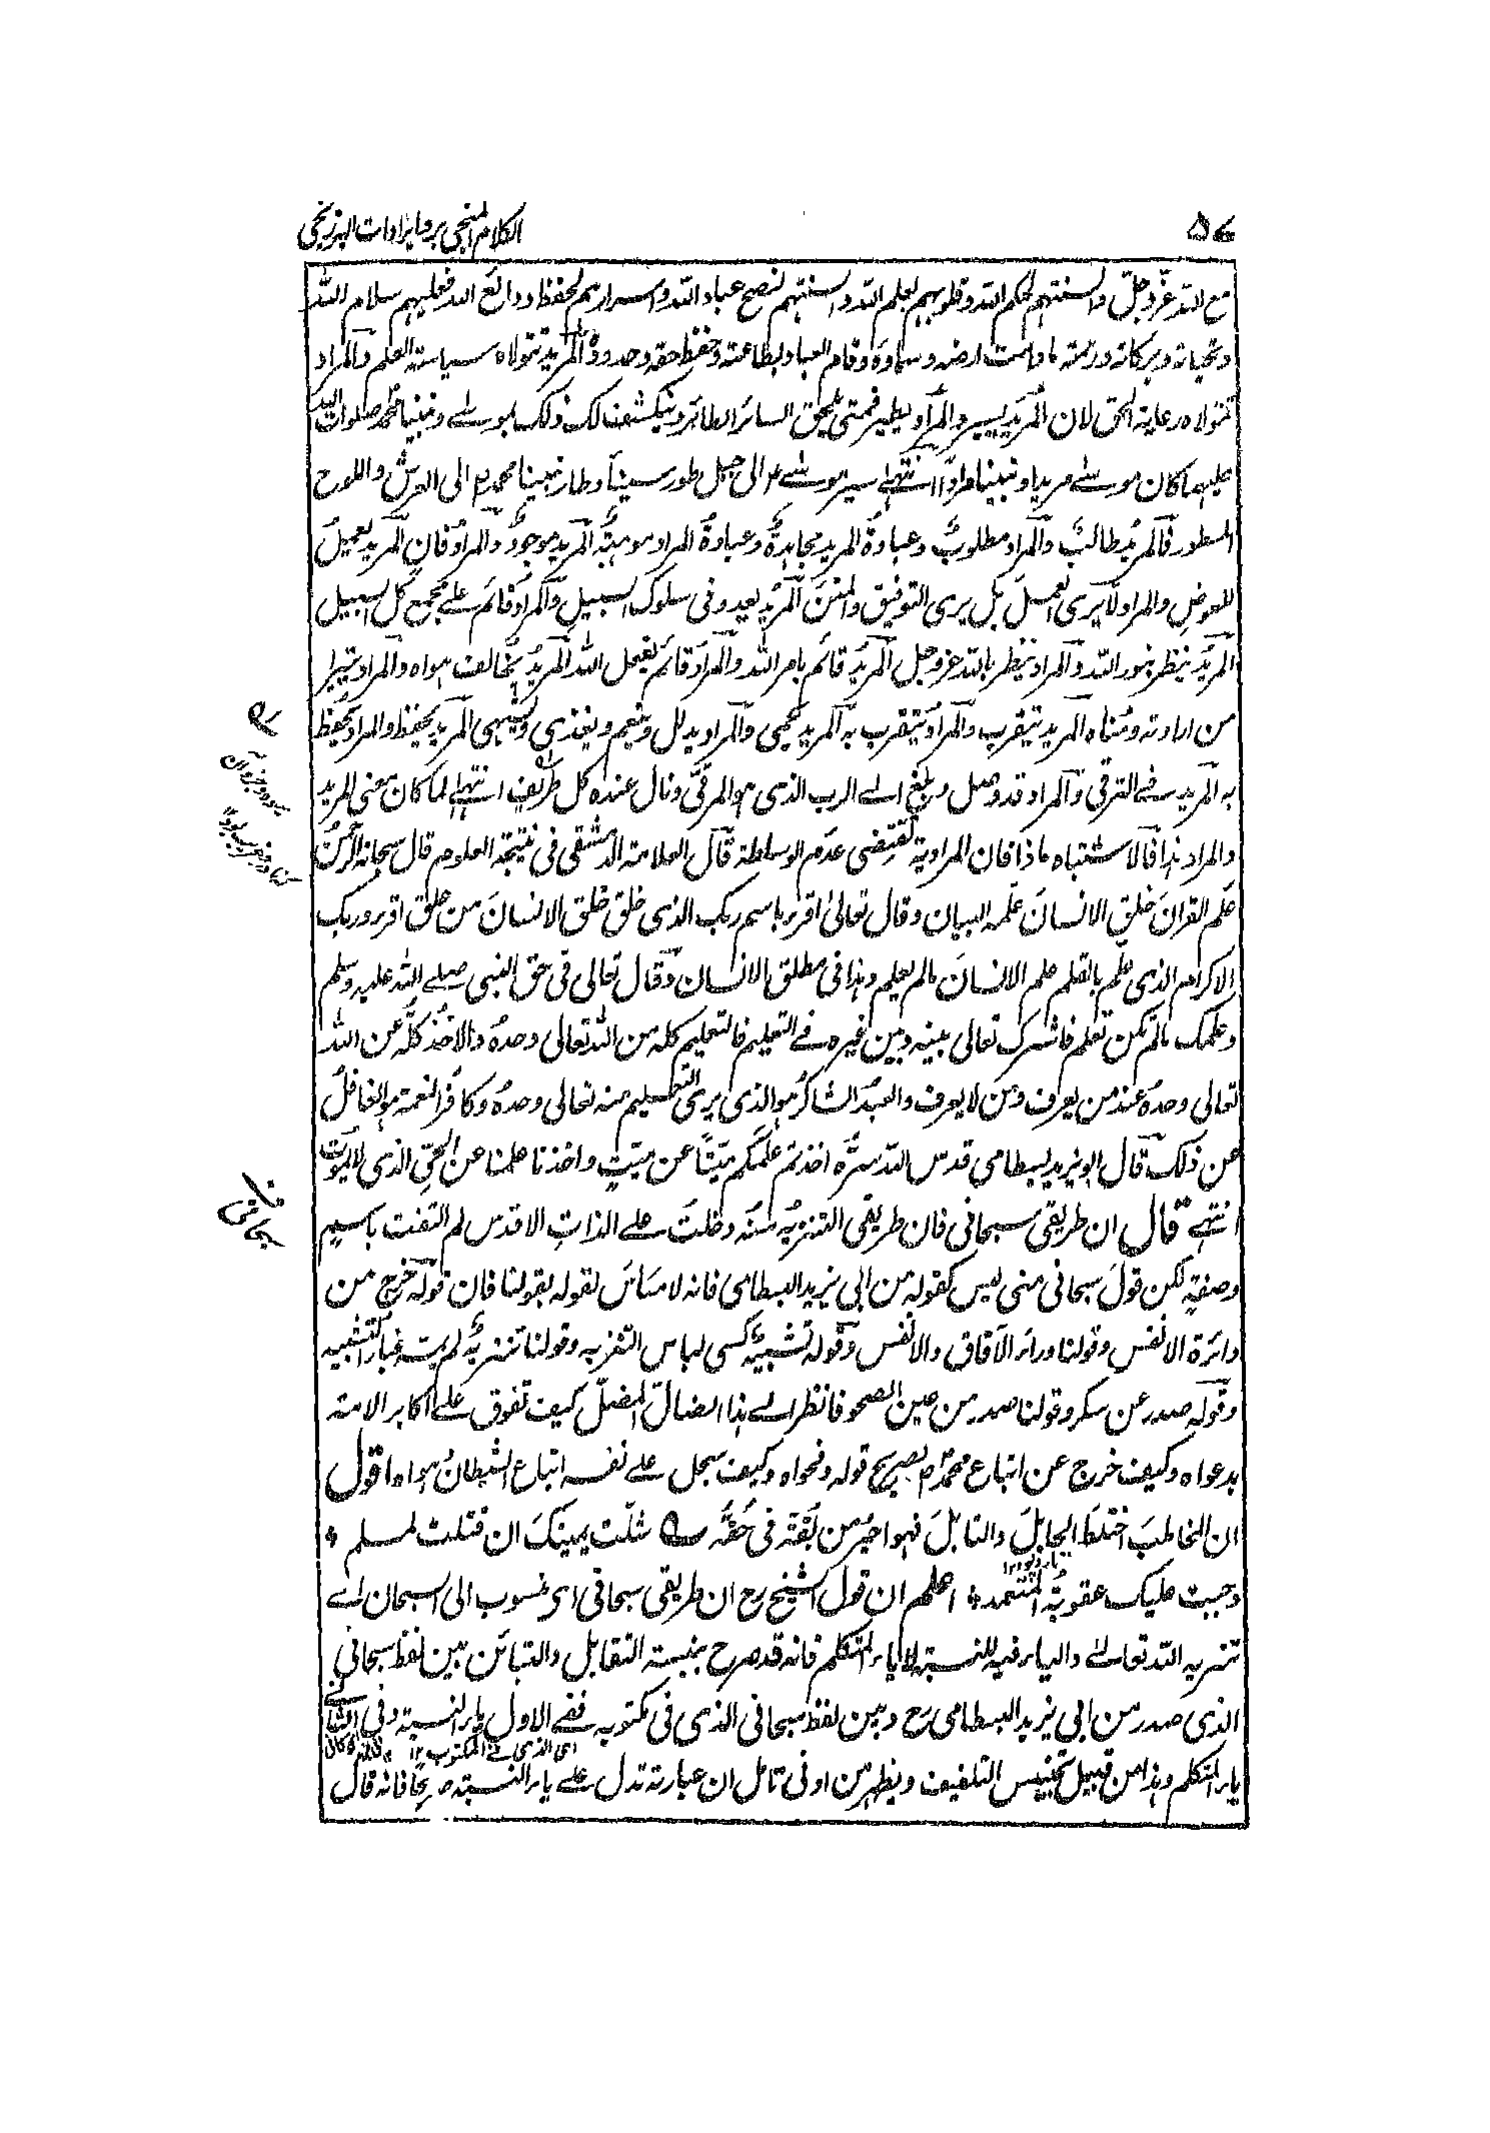 ٥٧
الكلام المنجى برد ايرادات البرزنجى
مع الله عز وجل والسنتهم لحكم الله وقلوبهم لعلم الله والسنتهم لنصح عباد الله واسرارهم لحفظ ودائع الله فعليهم سلام الله
وتحياته وبركاته ورحمته مادامت ارضه وسماؤه وقام العباد بطاعته وحفظ حقه وحدوده المريد تتولاه سياسته العلم والمراد
تتولاه رعاية الحق لان المريد يسير والمراد يطير فمتى يلحق السائر الطائر وينكشف لك ذلك بموسى ونبينا محمد صلوات الله
عليهما كان موسى مريدا ونبينا مرادا انتهى سير موسى ۴ الى جبل طور سينا وطار نبينا محمد ۴ الى العرش واللوح
المسطور فالمريد طالب والمراد مطلوب وعبادة المريد مجاهدة وعبادة المراد موهبة المريد موجود والمراد فان المريد يعمل
للعوض والمراد لا يرى العمل بل يرى التوفيق والمنن المريد يعدو فى سلوك السبيل والمراد قائم على مجمع كل السبيل
المريد ينظر بنور الله والمراد ينظر بالله عز وجل المريد قائم بامر الله والمراد قائم بفعل الله المريد يخالف هواه والمراد يتبرا
من ارادته ومناه المريد يتقرب والمراد يتقرب به المريد يحمى والمراد يدلل وينعم ويغذى ويشهى المريد يحفظ والمراد يحفظ
به المريد فى الترقى والمراد قد وصل وبلغ الى الرب الذى هو المرقى ونال عنده كل طريف انتهى لما كان معنى المريد
والمراد هذا فالاشتباه ماذا فان المرادية تقتضى عدم الوساطة قال العلامة الدمشقى فى نتيجة العلوم قال سبحانه الرحمن
علم القران خلق الانسان علمه البيان وقال تعالى اقرء باسم ربك الذى خلق خلق الانسان من علق اقرء وربك
الاكرم الذى علم بالقلم علم الانسان مالم يعلم وهذا فى مطلق الانسان وقال تعالى فى حق النبى صلى الله عليه وسلم
وعلمك مالم تكن تعلم فاشرك تعالى بينه وبين غيره فى التعليم فالتعليم كله من الله تعالى وحده والاخذ كله عن الله
تعالى وحده عند من يعرف ومن لا يعرف والعبد الشاكر هو الذى يرى التعليم منه تعالى وحده وكافر النعمة هو الغافل
عن ذلك قال ابو يزيد البسطامى قدس الله سره اخذتم علمكم ميتا عن ميت واخذنا علمنا عن الحى الذى لا يموت
انتهى قال ان طريقى سبحانى فان طريقى التنزيه منه دخلت على الذات الاقدس لم التفت باسم
وصفة لكن قول سبحانى منى ليس كقوله من ابى يزيد البسطامى فانه لا مساس لقوله بقولنا فان قوله خرج من
دائرة الانفس وقولنا وراء الآفاق والانفس وقوله تشبيه كسى لباس التنزيه وقولنا تنزيه لم يمسه غبار التشبيه
وقوله صدر عن سكر وقولنا صدر من عين الصحو فانظر الى هذا الضال المضل كيف تفوق على اكابر الامة
بدعواه وكيف خرج عن اتباع محمد ۴ بصريح قوله وفحواه وكيف سجل على نفسه اتباع الشيطان وهواه اقول
ان المخاطب اختلط الحابل والنابل فهو احير من بقة فى حقه شلت يمينك ان قتلت لمسلم *
وجبت عليك عقوبة المتعمد * اعلم ان قول الشيخ رح ان طريقى سبحانى اى منسوب الى السبحان اى
تنزيه الله تعالى والياء فيه للنسبة لا ياء المتكلم فانه قد صرح بنسبة التقابل والتبائن بين لفظ سبحانى
الذى صدر من ابى يزيد البسطامى رح وبين لفظ سبحانى الذى فى مكتوبه ففى الاول ياء النسبة وفى الثانى
اى الذى فى المكتوب ١٢
ياء المتكلم وهذا من قبيل تجنيس التلفيف ويظهر من ادنى تامل ان عبارته تدل على ياء النسبة صريحا فانه قال
قوله
سبحانى